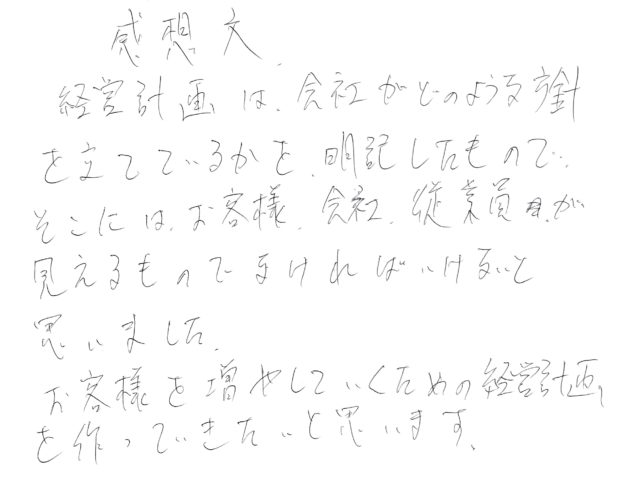 感想文
経営計画は、会社がどのような方針
を立てているかを、明記したもので、
そこには、お客様、会社、従業員が
見えるものでなければいけないと
思いました。
お客様を増やしていくための経営計画
を作っていきたいと思います。